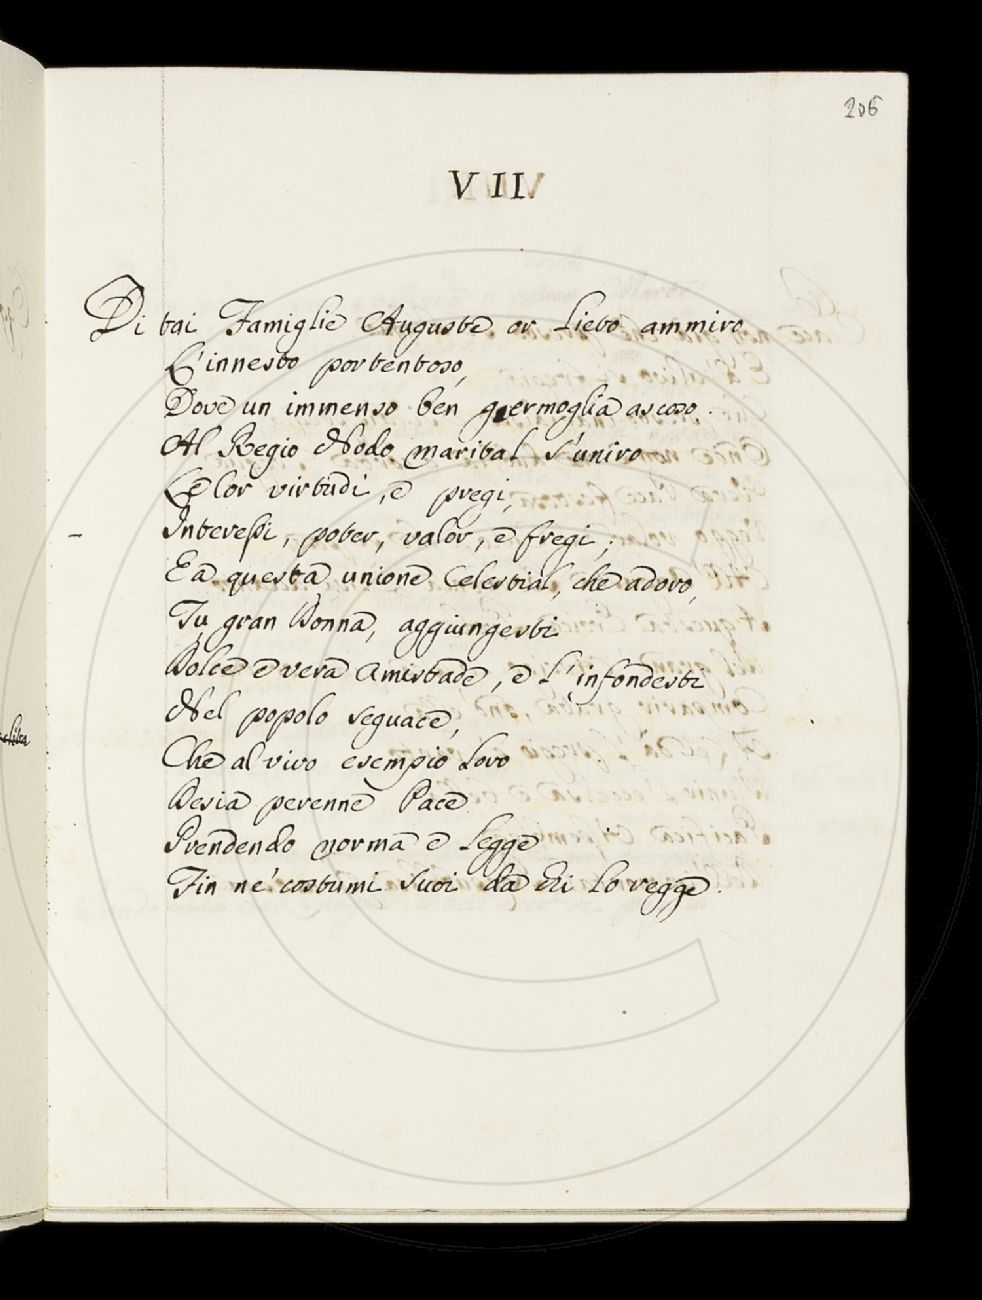 206
VII
Di tai Famiglie Auguste or lieto ammiro
L'innesto portentoso,
Dove un immenso ben germoglia ascoso.
Al Regio Nodo marital s'uniro
Le lor virtudi, e pregi,
Interessi, poter, valor, e fregi;
E a questa unione Celestial, che adoro,
Tu gran Donna, aggiungesti
Dolce e vera Amistade, e l'infondesti
Nel popolo seguace,
Che al vivo esempio loro
Desia perenne Pace
Prendendo norma e legge
Fin ne' costumi suoi da chi lo regge.